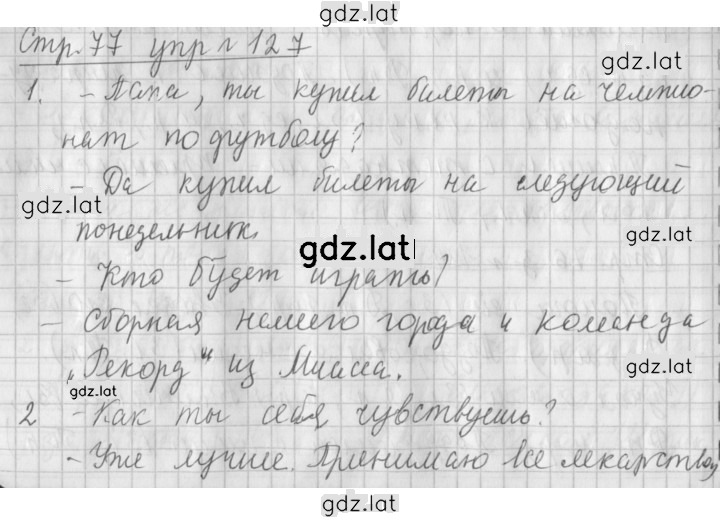 gdz.lat
Стр. 77 упр № 127
gdz.lat
1. - Папа, ты купил билеты на чемпио-
нат по футболу?
- Да купил билеты на следующий
gdz.lat
понедельник.
gdz.lat
gdz.lat
- Кто будет играть?
- Сборная нашего города и команда
"Рекорд" из Миасса.
gdz.lat
gdz.lat
2 - Как ты себя чувствуешь?
- Уже лучше. Принимаю все лекарства
gdz.lat